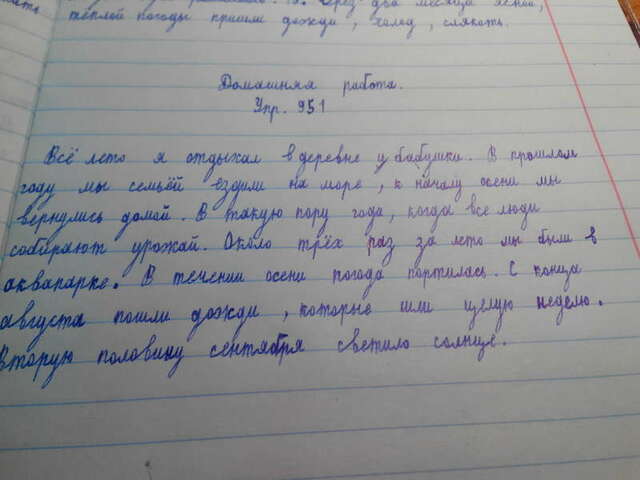 через два месяца ясной,
тёплой погоды пришли дожди, холод, слякоть.
Домашняя работа.
Упр. 951
Всё лето я отдыхал в деревне у бабушки. В прошлом
году мы семьёй ездили на море, к началу осени мы
вернулись домой. В такую пору года, когда все люди
собирают урожай. Около трёх раз за лето мы были в
аквапарке. В течении осени погода портилась. С конца
августа пошли дожди, которые шли целую неделю.
Вторую половину сентября светило солнце.